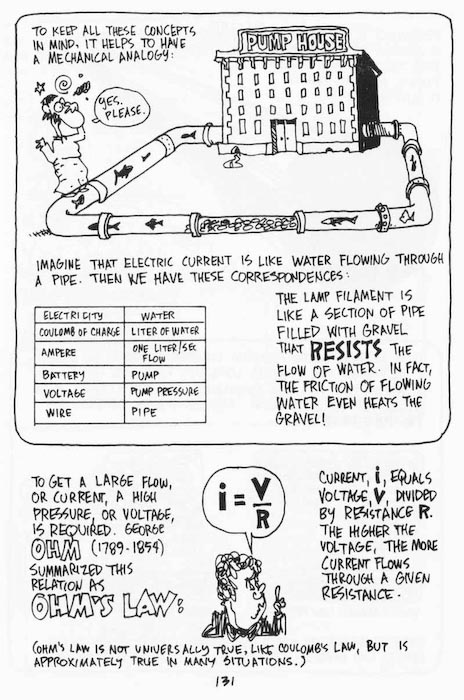 TO KEEP ALL THESE CONCEPTS
IN MIND, IT HELPS TO HAVE
A MECHANICAL ANALOGY:
YES.
PLEASE.
PUMP HOUSE
IMAGINE THAT ELECTRIC CURRENT IS LIKE WATER FLOWING THROUGH
A PIPE. THEN WE HAVE THESE CORRESPONDENCES:
ELECTRICITY WATER
COULOMB OF CHARGE LITER OF WATER
AMPERE ONE LITER/SEC
FLOW
BATTERY PUMP
VOLTAGE PUMP PRESSURE
WIRE PIPE
THE LAMP FILAMENT IS
LIKE A SECTION OF PIPE
FILLED WITH GRAVEL
THAT RESISTS THE
FLOW OF WATER. IN FACT,
THE FRICTION OF FLOWING
WATER EVEN HEATS THE
GRAVEL!
TO GET A LARGE FLOW,
OR CURRENT, A HIGH
PRESSURE, OR VOLTAGE,
IS REQUIRED. GEORGE
OHM (1789-1854)
SUMMARIZED THIS
RELATION AS
OHM'S LAW:
i = V
R
CURRENT, i, EQUALS
VOLTAGE, V, DIVIDED
BY RESISTANCE R.
THE HIGHER THE
VOLTAGE, THE MORE
CURRENT FLOWS
THROUGH A GIVEN
RESISTANCE.
(OHM'S LAW IS NOT UNIVERSALLY TRUE, LIKE COULOMB'S LAW, BUT IS
APPROXIMATELY TRUE IN MANY SITUATIONS.)
131